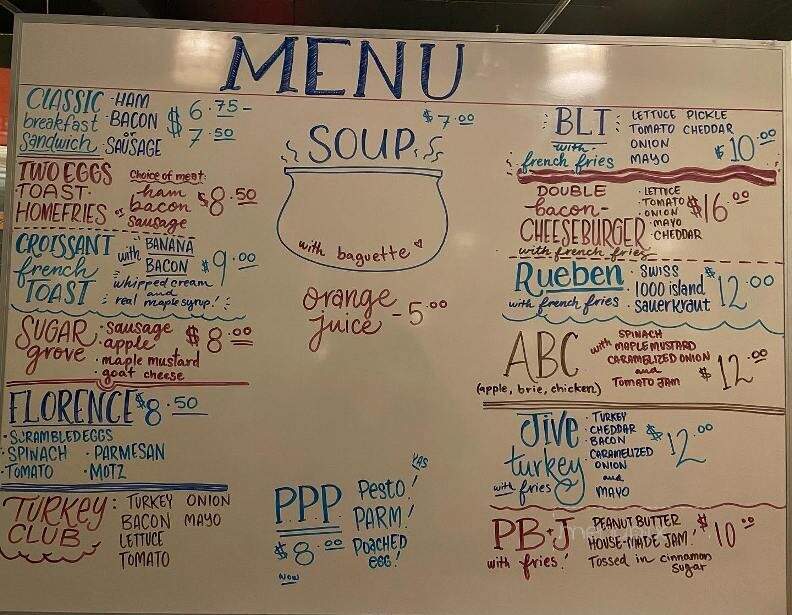 MENU
CLASSIC · HAM
breakfast · BACON $ 6.75 -
sandwich or 7.50
· SAUSAGE
TWO EGGS Choice of meat:
TOAST · ham $8.50
HOMEFRIES bacon
or sausage
CROISSANT with BANANA
french BACON $9.00
TOAST whipped cream
and
real maple syrup!
SUGAR · sausage $8.00
grove · apple
· maple mustard
· goat cheese
FLORENCE $8.50
· SCRAMBLED EGGS
· SPINACH · PARMESAN
· TOMATO · MOTZ
TURKEY : TURKEY ONION
CLUB BACON MAYO
LETTUCE
TOMATO
$7.00
SOUP
with baguette
orange
juice - 5.00
YAS
PPP Pesto!
PARM!
$8.00 POACHED
egg!
wow
BLT : LETTUCE PICKLE
with TOMATO CHEDDAR
french fries ONION $10.00
MAYO
DOUBLE · LETTUCE
- bacon - · TOMATO $16.00
CHEESEBURGER · ONION
with french fries · MAYO
· CHEDDAR
Rueben · SWISS $12.00
with french fries · 1000 island
· sauerkraut
ABC with SPINACH
MAPLE MUSTARD
(apple, brie, chicken) CARAMELIZED ONION
and $12.00
TOMATO JAM
Jive · TURKEY
turkey · CHEDDAR $12.00
with fries · BACON
· CARAMELIZED
ONION
and
· MAYO
PB+J PEANUT BUTTER $10.00
with fries! HOUSE-MADE JAM!
Tossed in cinnamon
sugar